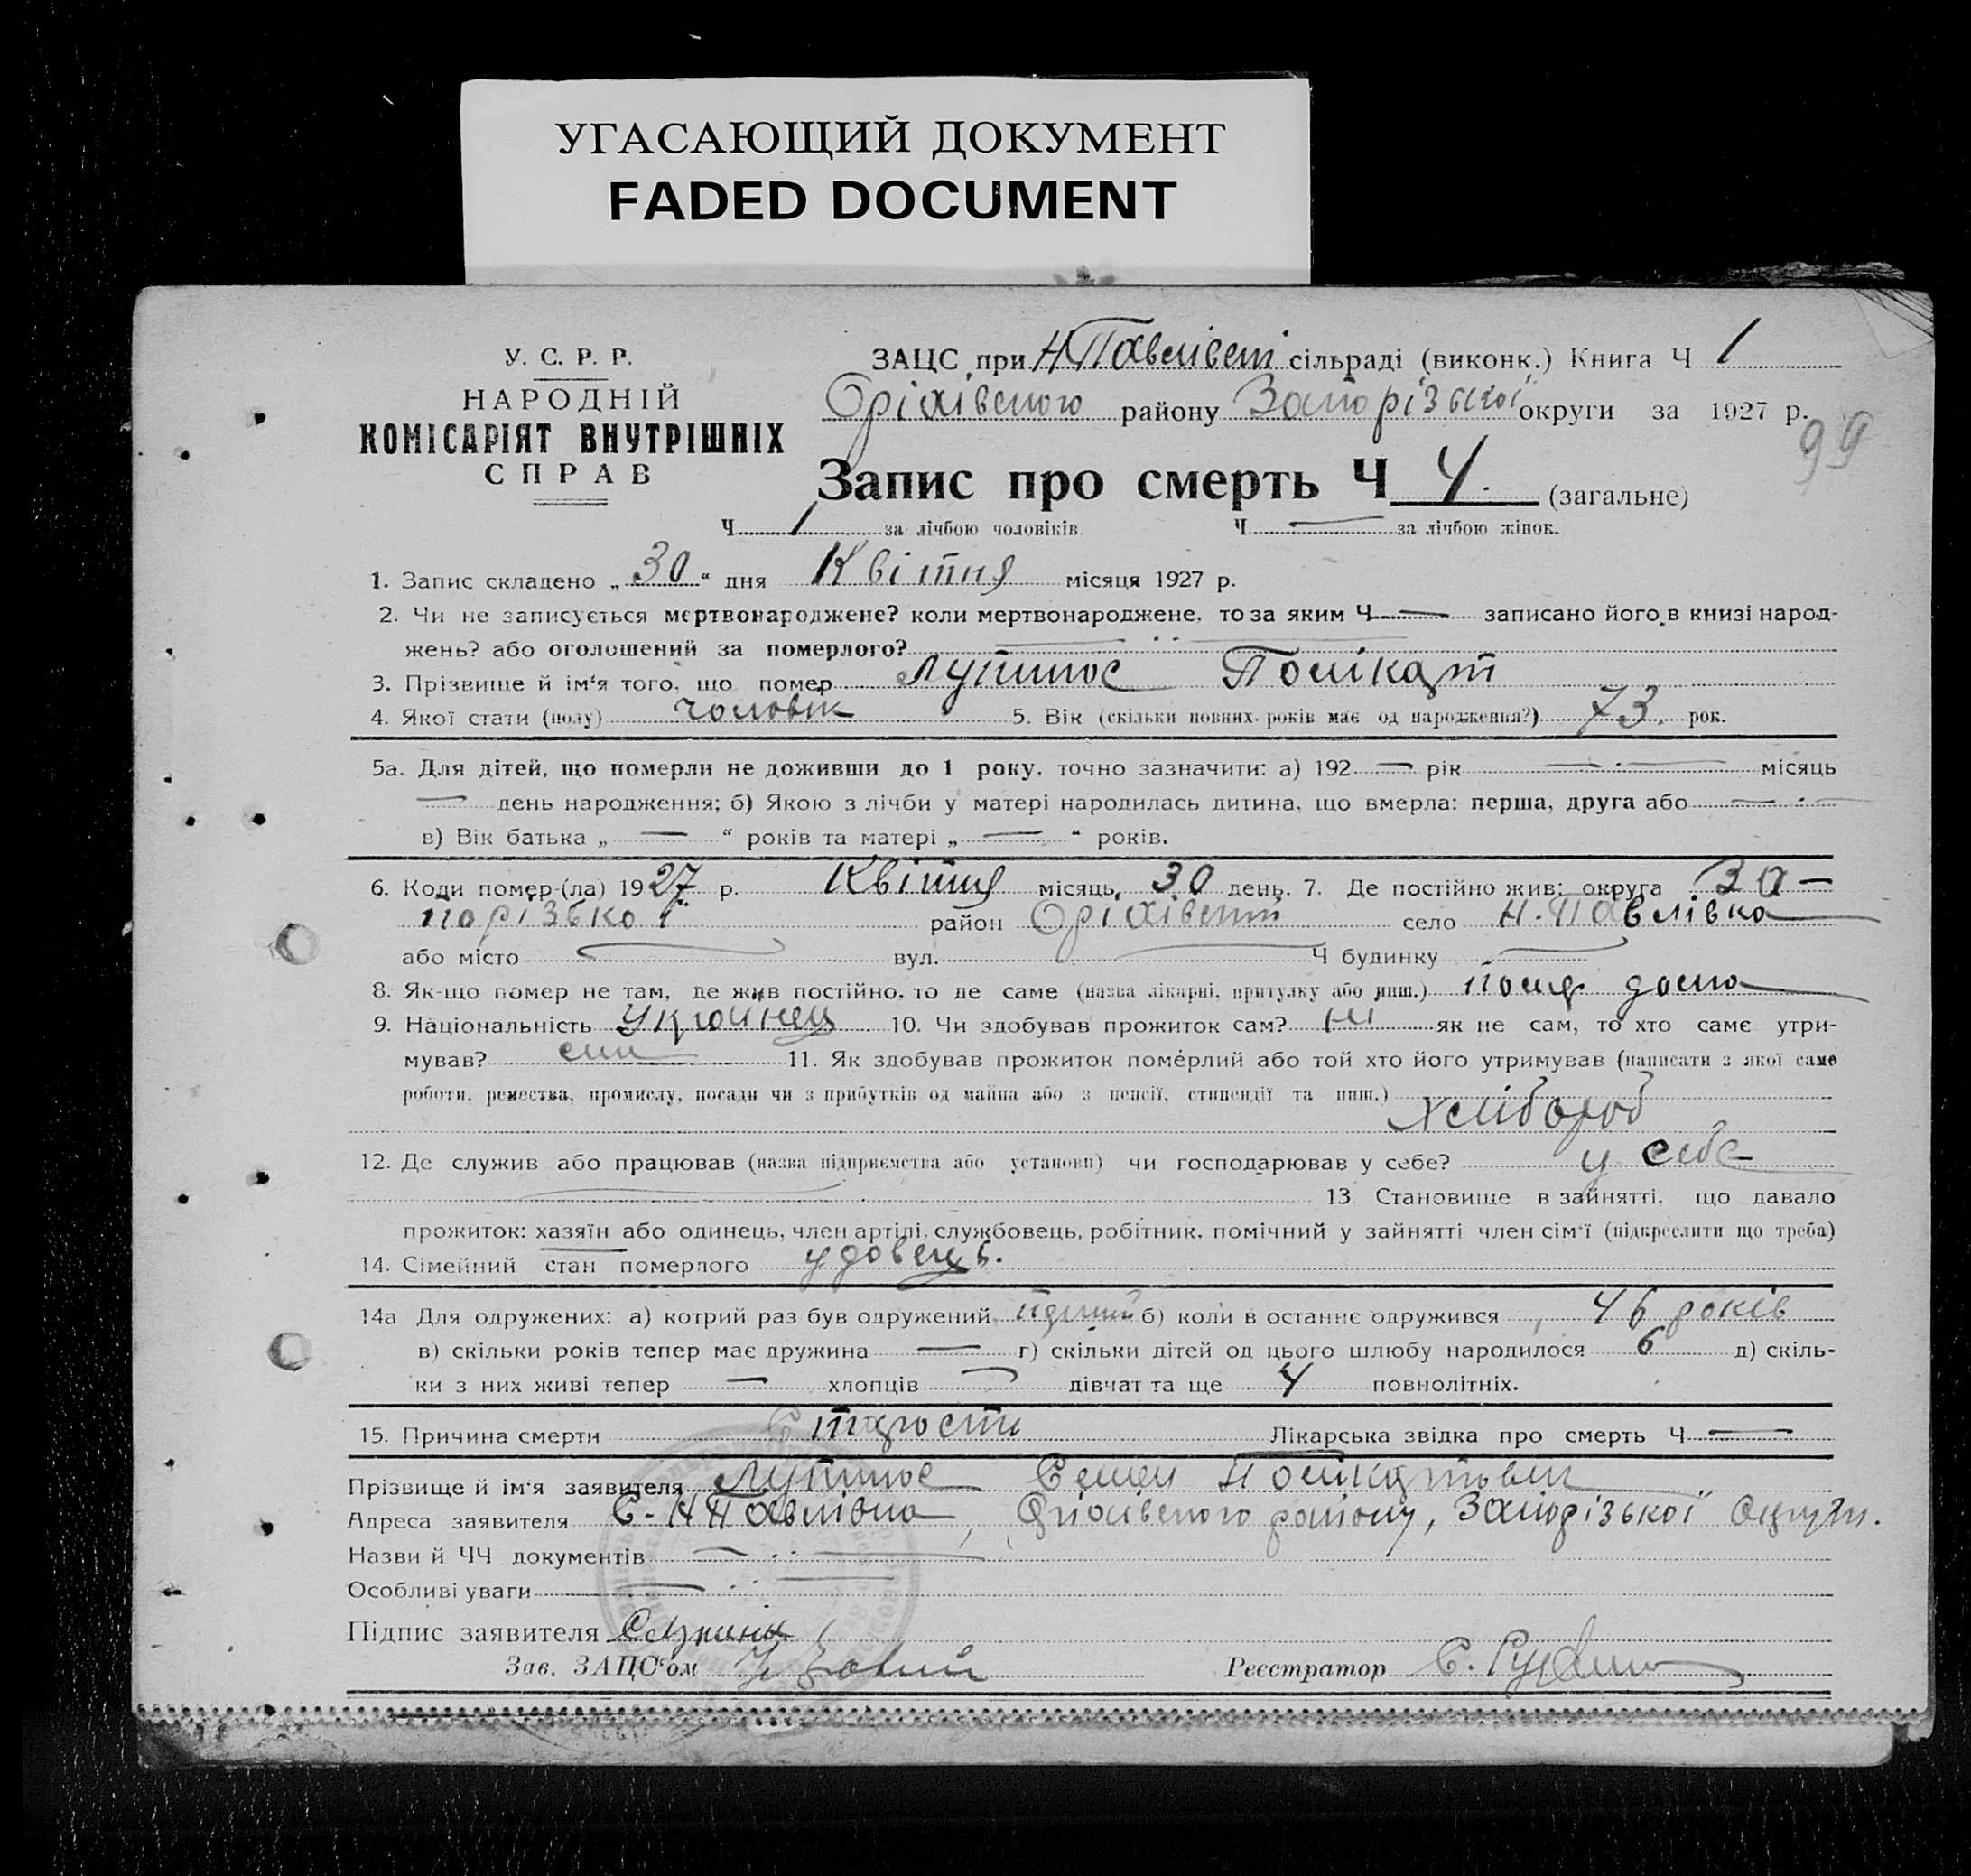 УГАСАЮЩИЙ ДОКУМЕНТ
FADED DOCUMENT
У. С. Р. Р.
НАРОДНІЙ
КОМІСАРІЯТ ВНУТРІШНІХ
СПРАВ
ЗАЦС при Н Павлівській сільраді (виконк.) Книга Ч 1
Оріхівського району Запорізької округи за 1927 р.
99
Запис про смерть Ч 4. (загальне)
Ч 1 за лічбою чоловіків. Ч — за лічбою жінок.
1. Запис складено „ 30 “ дня Квітня місяця 1927 р.
2. Чи не записується мертвонароджене? коли мертвонароджене, то за яким Ч — записано його в книзі народ-
жень? або оголошений за померлого?
3. Прізвище й ім‘я того, що помер Лупинос Полікарп
4. Якої стати (полу) чоловік 5. Вік (скільки повних років має од народження?) 73. рок.
5а. Для дітей, що померли не доживши до 1 року, точно зазначити: а) 192 — рік — місяць
— день народження; б) Якою з лічби у матері народилась дитина, що вмерла: перша, друга або —
в) Вік батька „ — “ років та матері „ — “ років.
6. Коли помер-(ла) 1927 р. Квітня місяць, 30 день. 7. Де постійно жив: округа За-
порізької район Оріхівський село Н. Павлівка
або місто — вул. — Ч будинку —
8. Як-що помер не там, де жив постійно, то де саме (назва лікарні, притулку або инш.) помер дома
9. Національність Українець 10. Чи здобував прожиток сам? ні як не сам, то хто саме утри-
мував? син 11. Як здобував прожиток померлий або той хто його утримував (написати з якої саме
роботи, ремества, промислу, посади чи з прибутків од майна або з пенсії, стипендії та инш.)
хлібороб
12. Де служив або працював (назва підприємства або установи) чи господарював у себе? у себе
13 Становище в зайнятті, що давало
прожиток: хазяїн або одинець, член артілі, службовець, робітник, помічний у зайнятті член сім‘ї (підкреслити що треба)
14. Сімейний стан померлого удовець.
14а Для одружених: а) котрий раз був одружений б) коли в останнє одружився 46 років
в) скільки років тепер має дружина — г) скільки дітей од цього шлюбу народилося 6 д) скіль-
ки з них живі тепер — хлопців — дівчат та ще 4 повнолітніх.
15. Причина смерти Старости Лікарська звідка про смерть Ч —
Прізвище й ім‘я заявителя Лупинос Семен Полікарпович
Адреса заявителя С. Н Павлівка, Оріхівського району, Запорізької Округи.
Назви й ЧЧ документів —
Особливі уваги —
Підпис заявителя
Зав. ЗАЦС‘ом
Реєстратор С.